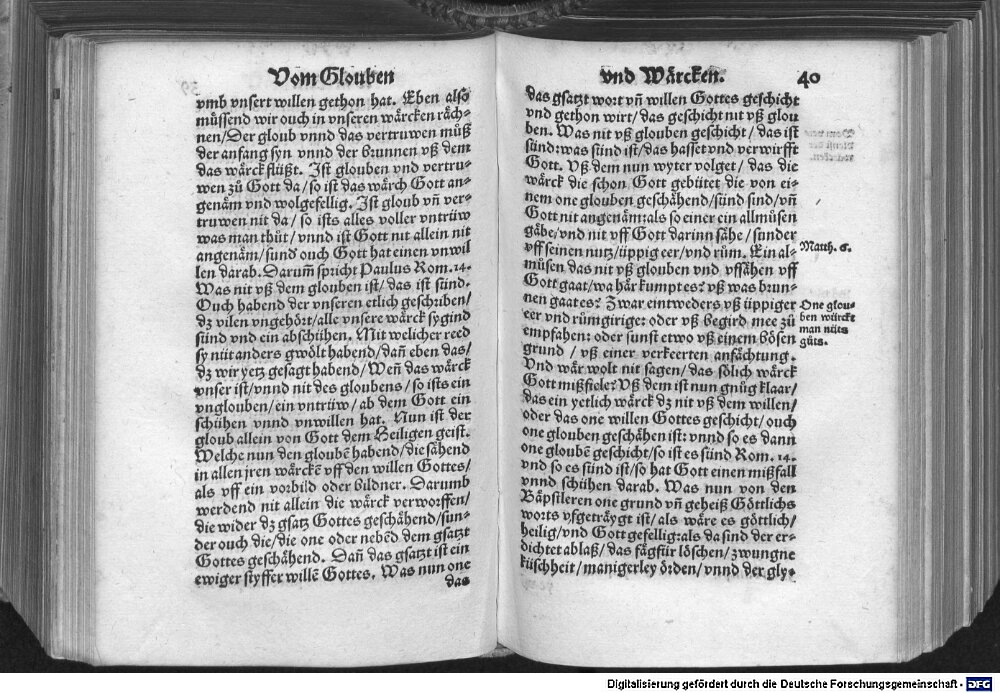 Vom Glouben
vmb vnsert willen gethon hat. Eben also
müssend wir ouch in vnseren wärcken räch⸗
nen/Der gloub vnnd das vertruwen müß
der anfang syn vnnd der brunnen vß dem
das wärck flüßt. Ist glouben vnd vertru⸗
wen zů Gott da/so ist das wärch Gott an⸗
genäm vnd wolgefellig. Ist gloub vñ ver⸗
truwen nit da/so ists alles voller vntrüw
was man thůt/vnnd ist Gott nit allein nit
angenäm/sund ouch Gott hat einen vnwil
len darab. Darum̃ spricht Paulus Rom.14.
Was nit vß dem glouben ist/das ist sünd.
Ouch habend der vnseren etlich geschriben/
dz vilen vngehört/alle vnsere wärck sygind
sünd vnd ein abschühen. Mit welicher reed
sy nüt anders gwölt habend/dañ eben das/
dz wir yetz gesagt habend/Weñ das wärck
vnser ist/vnnd nit des gloubens/so ists ein
vnglouben/ein vntrüw/ab dem Gott ein
schühen vnnd vnwillen hat. Nun ist der
gloub allein von Gott dem Heiligen geist.
Welche nun den gloubē habend/die sähend
in allen jren wärckē vff den willen Gottes/
als vff ein vorbild oder bildner. Darumb
werdend nit allein die wärck verworffen/
die wider dz gsatz Gottes geschähend/sun⸗
der ouch die/die one oder nebēd dem gsatzt
Gottes geschähend. Dañ das gsatzt ist ein
ewiger styffer willē Gottes. Was nun one
das
vnd Wärcken. 40
das gsatzt wort vñ willen Gottes geschicht
vnd gethon wirt/das geschicht nit vß glou
ben. Was nit vß glouben geschicht/das ist
sünd: was sünd ist/das hasset vnd verwirfft
Gott. Vß dem nun wyter volget/das die
wärck die schon Gott gebütet die von ei⸗
nem one glouben geschähend/sünd sind/vñ
Gott nit angenäm: als so einer ein allmůsen
gäbe/vnd nit vff Gott darinn sähe/sunder
vff seinen nutz/üppig eer/vnd rům. Ein al⸗
můsen das nit vß glouben vnd vfsähen vff
Gott gaat/wa här kumpt es? vß was brun⸗
nen gaat es? Zwar eintweders vß üppiger
eer vnd růmgirige: oder vß begird mee zů
empfahen: oder sunst etwo vß einem bösen
grund/vß einer verkeerten anfächtung.
Vnd wär wolt nit sagen/das sölich wärck
Gott mißfiele? Vß dem ist nun gnůg klaar/
das ein yetlich wärck dz nit vß dem willen/
oder das one willen Gottes geschicht/ouch
one glouben geschähen ist: vnnd so es dann
one gloubē geschicht/so ist es sünd Rom. 14.
vnd so es sünd ist/so hat Gott einen mißfall
vnnd schühen darab. Was nun von den
Bäpstleren one grund vñ geheiß Göttlichs
worts vfgeträygt ist/als wäre es göttlich/
heilig/vnd Gott gefellig: als da sind der er⸗
dichtet ablaß/das fägfür löschen/zwungne
küschheit/manigerley örden/vnnd der gly⸗
Matth. 6.
One glou⸗
ben würckt
man nüts
gůts.
Digitalisierung gefördert durch die Deutsche Forschungsgemeinschaft - DFG